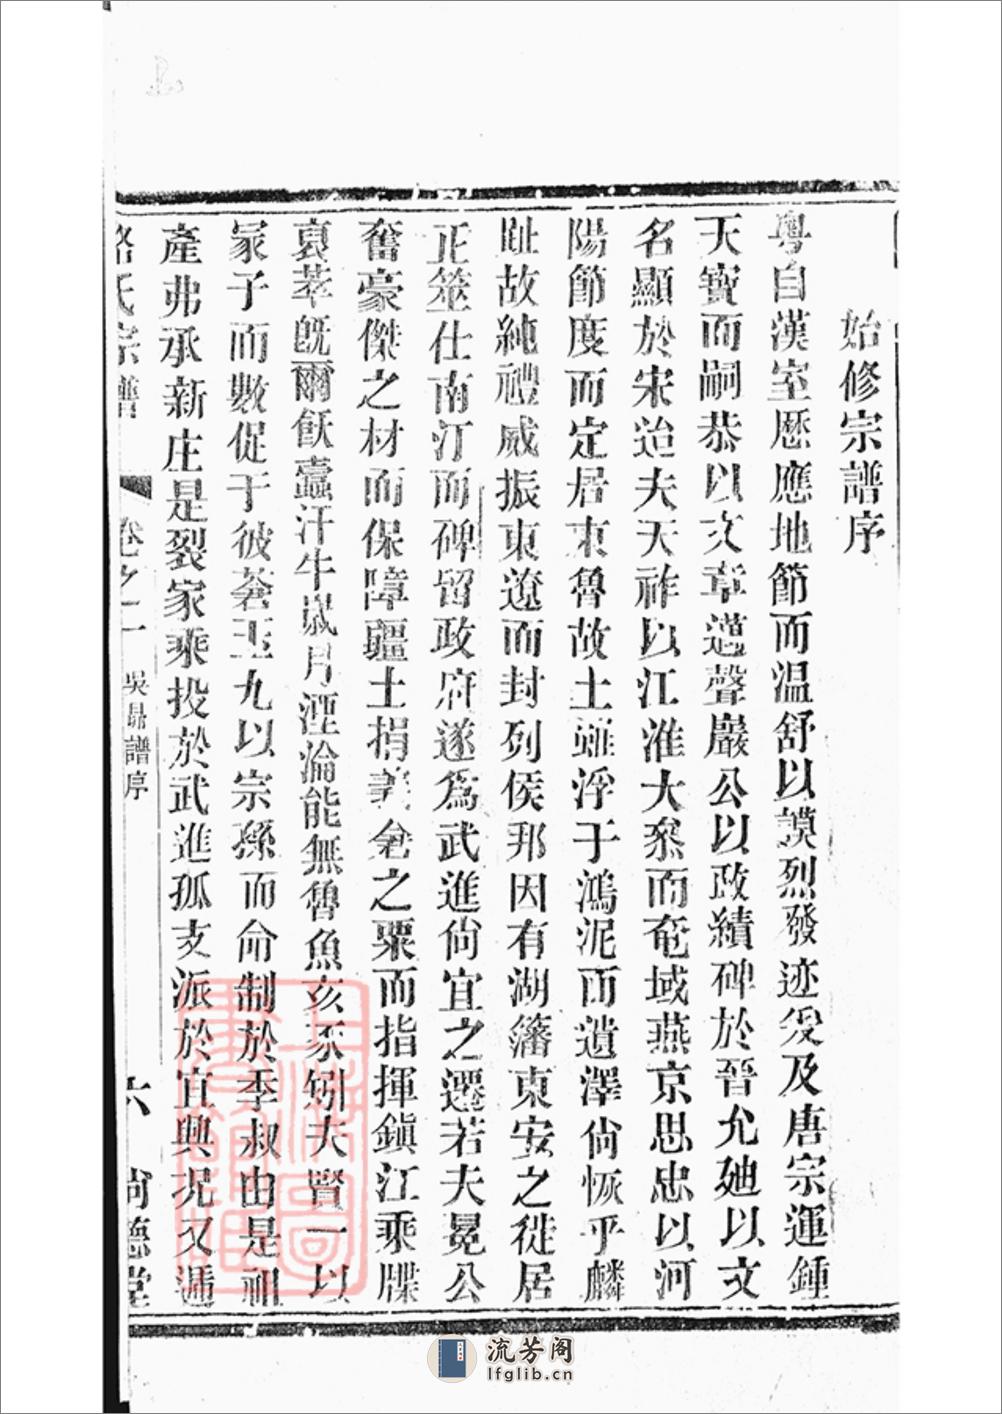 始修宗譜序
粵自漢室歷應地節而温舒以謨烈發迹爰及唐宗運鍾
天寶而嗣恭以文章邁聲巖公以政績碑於晉允廸以文
名顯於宋迨夫天祚以江淮大叅而奄域燕京思忠以河
陽節度而定居東魯故土雖浮于鴻泥而遺澤尙恢乎麟
趾故純禮威振東遼而封列侯邦因有湖藩東安之徙居
正筮仕南汀而碑留政府遂爲武進尙宜之遷若夫冕公
奮豪傑之材而保障疆土捐義兊之粟而指揮鎭江乘牒
裒萃旣爾飫蠹汗牛歲月湮淪能無魯魚亥豕矧夫賢一以
冡子而數促于彼蒼玉九以宗孫而命制於季叔由是祖
產弗承新庄是裂家乘投於武進孤支派於宜興况又遞
路氏宗譜
卷之二
吳鼎譜序
六
尙德堂
流芳阁
lfglib.cn